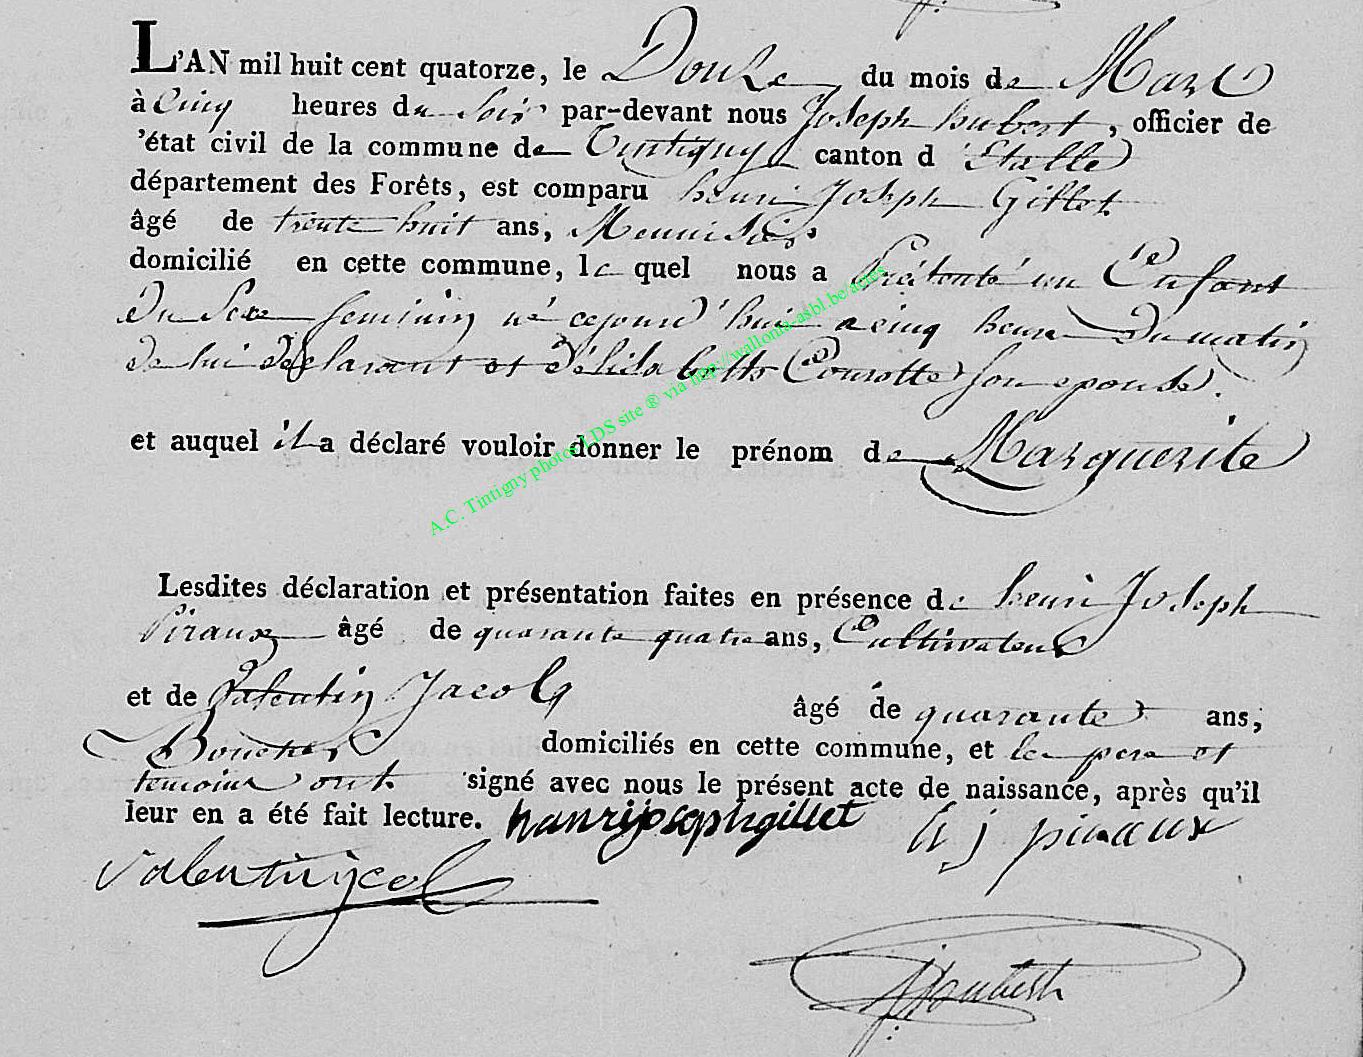 L'AN mil huit cent quatorze, le Douze du mois de Mars
à Cinq heures du Soir par-devant nous Joseph hubert, officier de
'état civil de la commune de Tintigny canton d'Etalle
département des Forêts, est comparu henri Joseph Gillet
âgé de trente huit ans, Menuisier
domicilié en cette commune, le quel nous a présenté un Enfant
Du Sexe feminin né cejourd'hui a cinq heure Du matin
De lui Déclarant et D'élisabethe Courotte son epouse.
et auquel il a déclaré vouloir donner le prénom de Marguerite
A.C. Tintigny photos LDS site ® via http://wallonia-asbl.be/actes
Lesdites déclaration et présentation faites en présence de henri Joseph
Piraux âgé de quarante quatre ans, Cultivateur
et de Valentin Jacob âgé de quarante ans,
Boucher domiciliés en cette commune, et les pere et
temoins ont signé avec nous le présent acte de naissance, après qu'il
leur en a été fait lecture. hanrijosephgillet h j piraux
valentin
J hubert